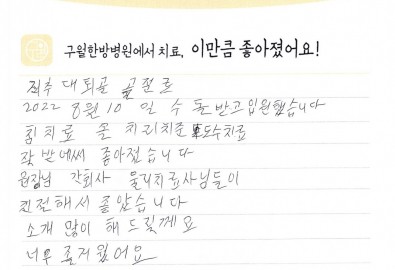 구월한방병원에서 치료, 이만큼 좋아졌어요!
척추 대퇴골 골절로
2022 8월 10일 수술받고 입원했습니다
침치료 물 치리치준 도수치료
많이 좋아졌습니다
원장님 간회사 물리치료사님들이
친절해서 좋았습니다
소개 많이 해 드릴께요
너무 즐거웠어요